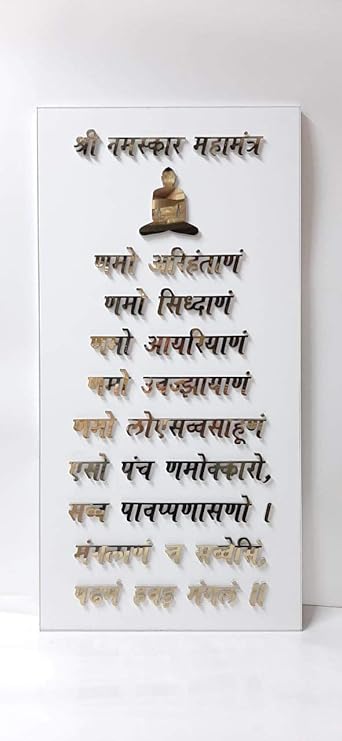 श्री नमस्कार महामंत्र
णमो अरिहंताणं
णमो सिध्दाणं
णमो आयरियाणं
णमो उवज्झायाणं
णमो लोएसव्वसाहूणं
एसो पंच णमोक्कारो,
सव्व पावप्पणासणो ।
मंगलाणं च सव्वेसिं,
पढमं हवइ मंगलं ॥